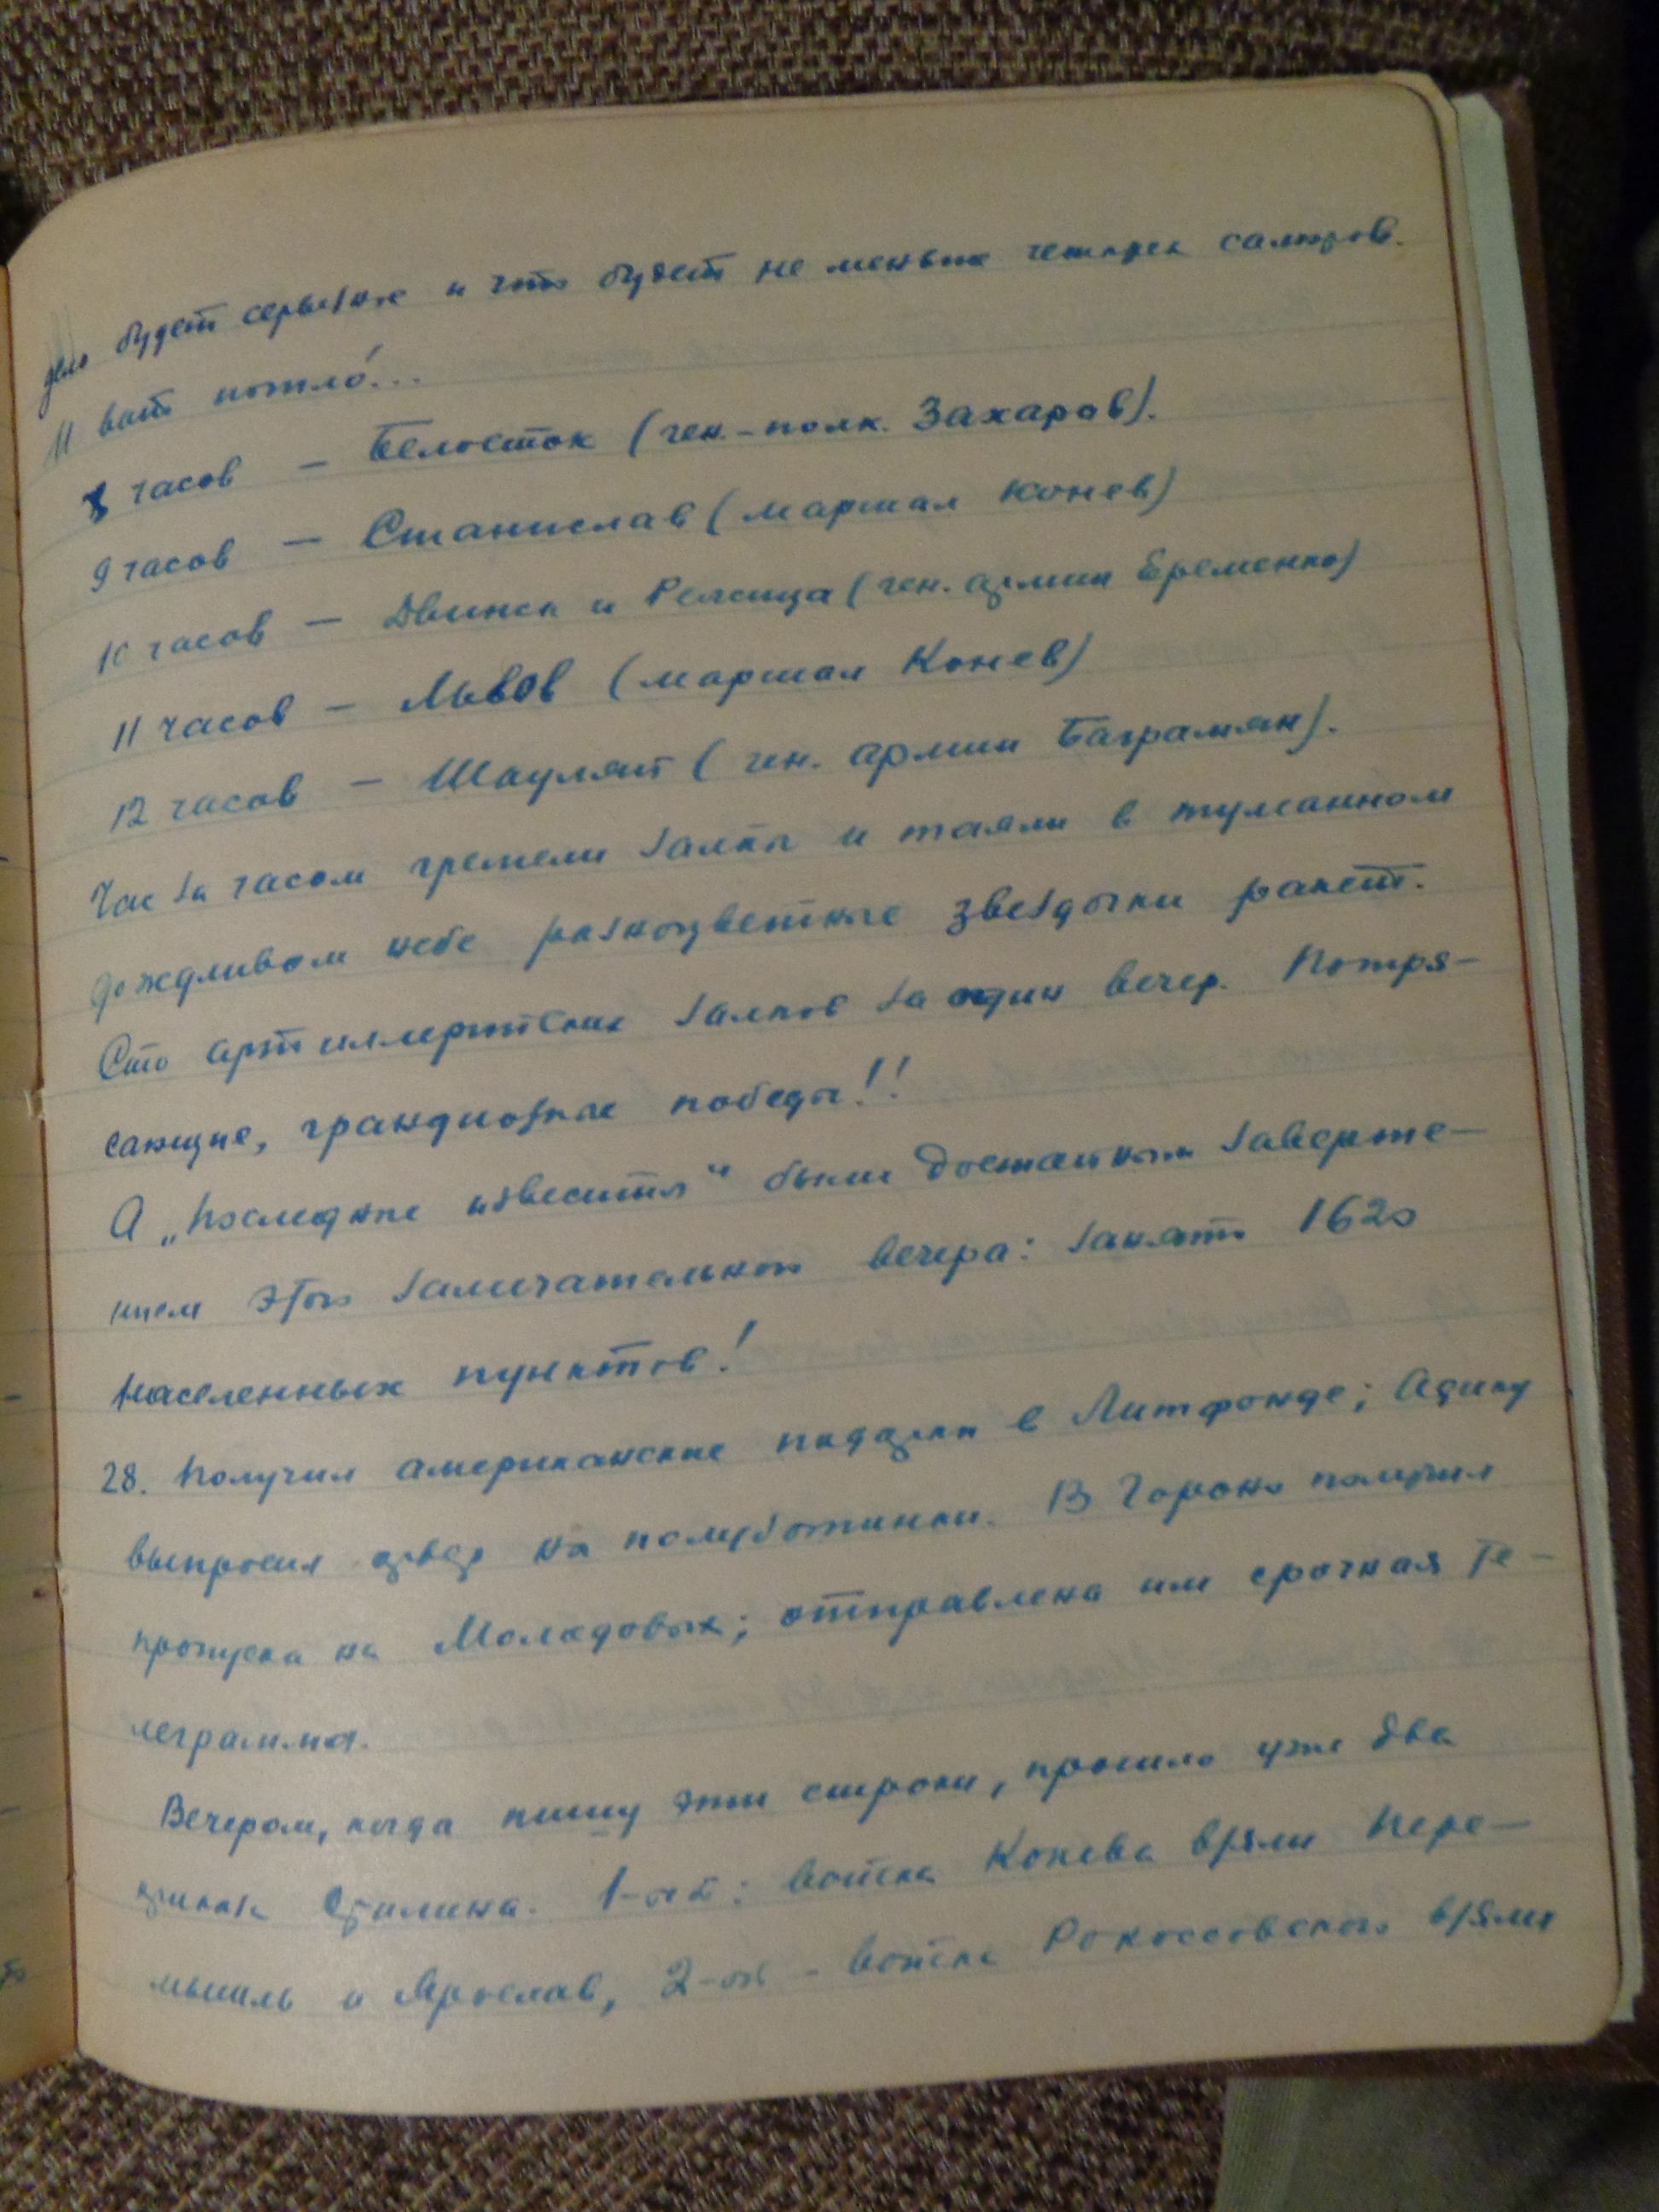 дело будет серьезное и что будет не меньше четырех салютов.
И вот пошло!...
8 часов — Белосток (ген.-полк. Захаров).
9 часов — Станислав (маршал Конев)
10 часов — Двинск и Режица (ген. армии Еременко)
11 часов — Львов (маршал Конев)
12 часов — Шауляй (ген. армии Баграмян).
Час за часом гремели залпы и таяли в туманном
дождливом небе разноцветные звездочки ракет.
Сто артиллерийских залпов за один вечер. Потря-
сающие, грандиозные победы!!
А „Последние известия" были достойным заверше-
нием этого замечательного вечера: занято 1620
населенных пунктов!
28. Получил американские подарки в Литфонде; Адику
выпросил ордер на полуботинки. В Гороно получил
пропуска на Молодовых; отправлена им срочная те-
леграмма.
Вечером, когда пишу эти строки, прошло уже два
приказа Сталина. 1-ый: войска Конева взяли Пере-
мышль и Ярослав, 2-ой - войска Рокоссовского взяли